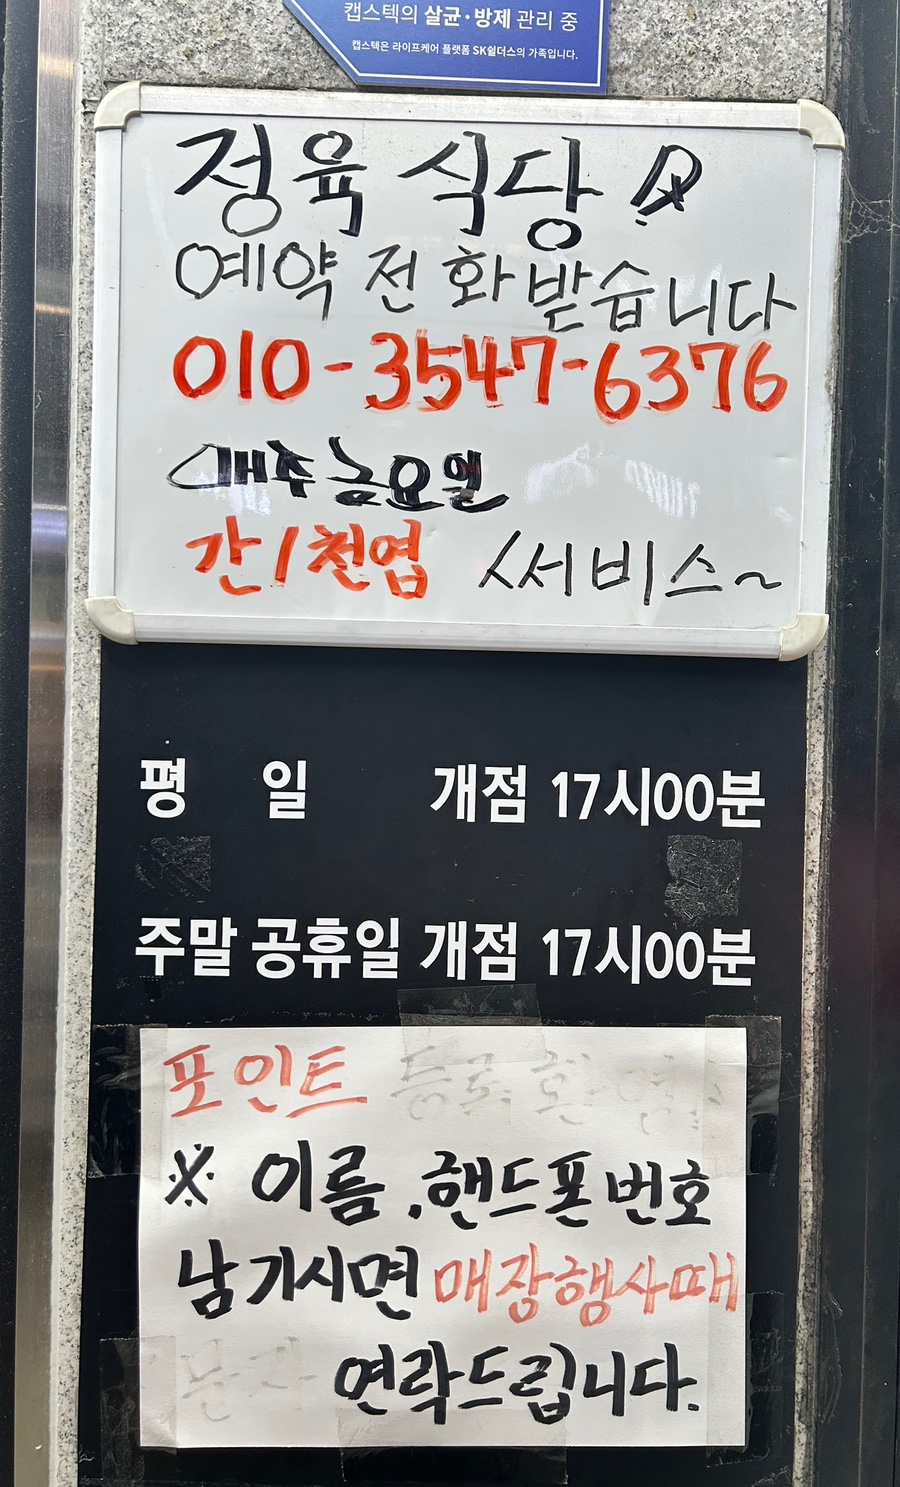 캡스텍의 살균·방제 관리 중
캡스텍은 라이프케어 플랫폼 SK쉴더스의 가족입니다.
정육 식당
예약 전화받습니다
010-3547-6376
매주 금요일
간/천엽 써비스~
평 일 개점 17시00분
주말 공휴일 개점 17시00분
포인트 등록 환영
※ 이름.핸드폰번호
남기시면 매장행사때
문자 연락드립니다.